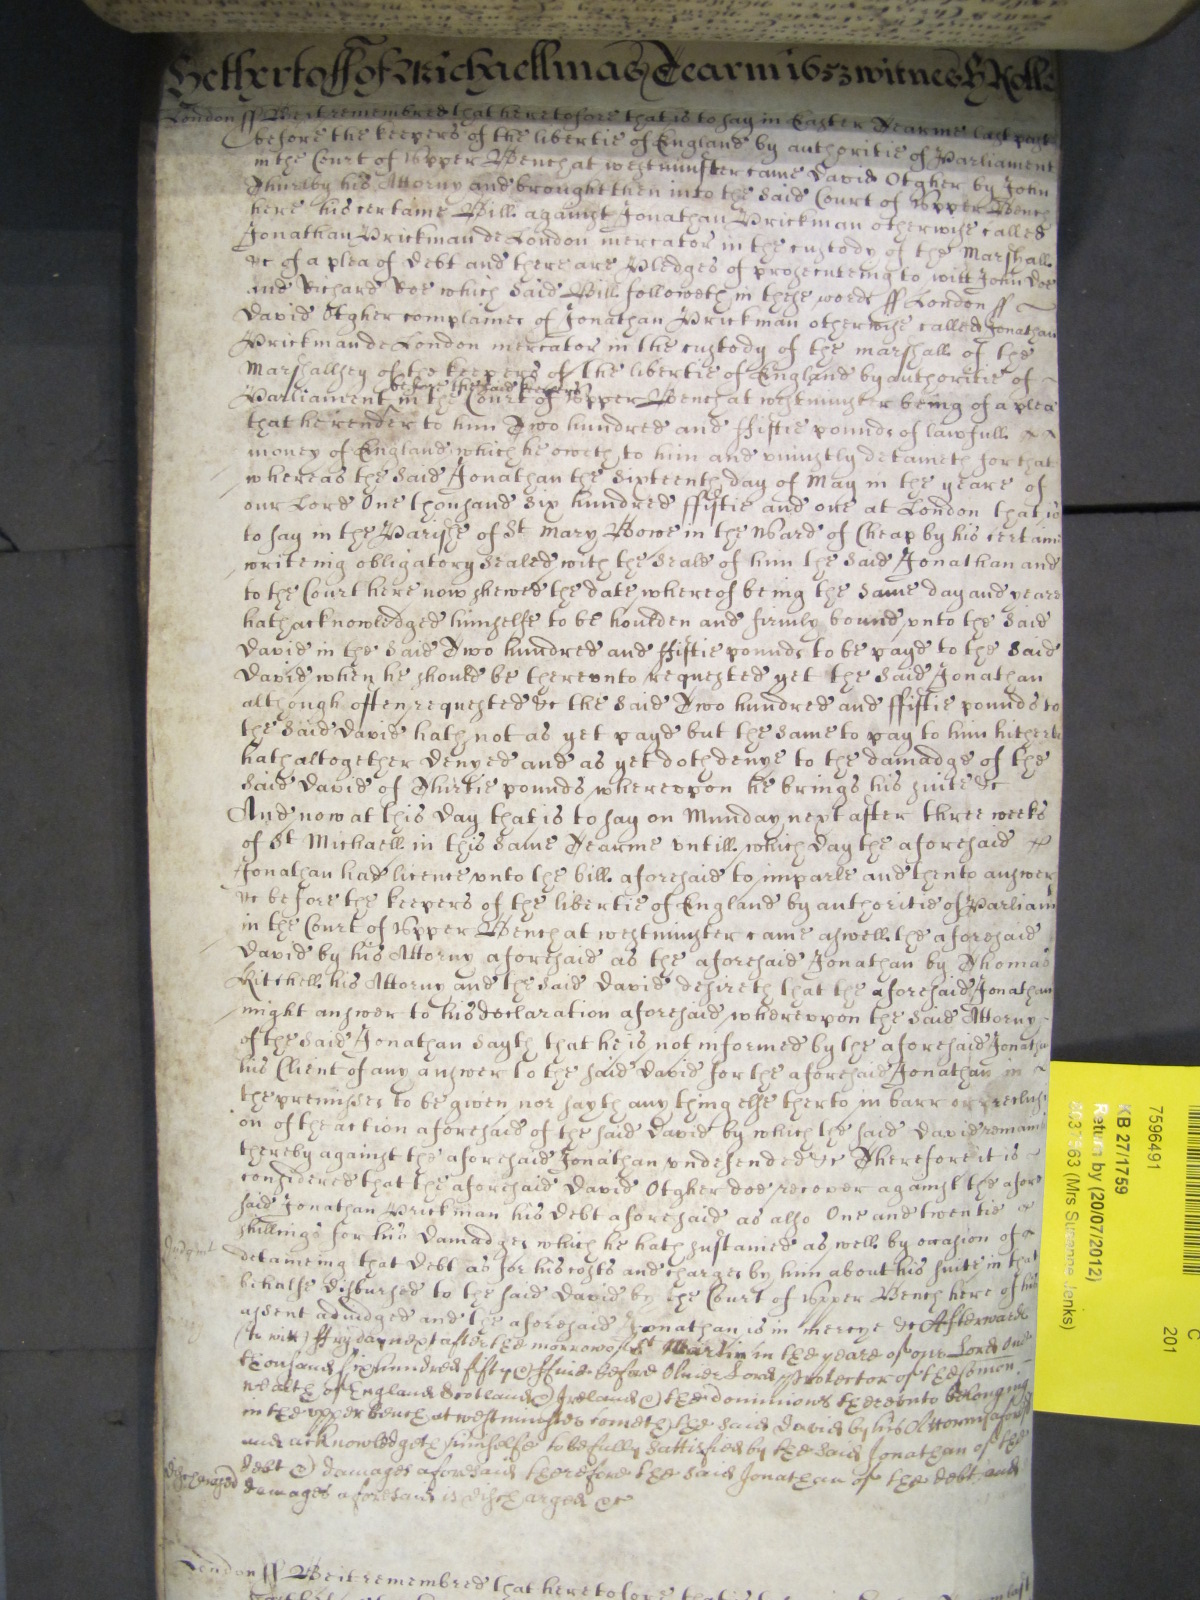 Hethertoff of Michaellmas Tearm 1653 witnes H Rolle
London ss Be it remembred that heretofore that is to say in Easter Tearme last past
before the keepers of the libertie of England by authoritie of Parliament
in the Court of Upper Bench at westminster came David Otgher by John
Thursby his Attorny and brought then into the said Court of Upper Bench
here his certaine Bill against Jonathan Prickman otherwise called
Jonathan Prickman de London mercator in the custody of the Marshall
&c of a plea of debt and there are Pledges of prosecuteing to witt John Doe
and Richard Roe which said Bill followeth in these words ss London ss
David Otgher complaines of Jonathan Prickman otherwise called Jonathan
Prickman de London mercator in the custody of the marshall of the
Marshallsey of the keepers of the libertie of England by authoritie of
before the said keepers
Parliament in the Court of Upper Bench at westminster being of a plea
that he render to him Two hundred and ffiftie pounds of lawfull
money of England which he oweth to him and uniustly detaineth for that
whereas the said Jonathan the sixteenth day of May in the yeare of
our Lord One thousand six hundred ffiftie and one at London that is
to say in the Parishe of St Mary Bowe in the Ward of Cheap by his certaine
writeing obligatory sealed with the seale of him the said Jonathan and
to the Court here now shewed the date whereof being the same day and yeare
hath acknowledged himselfe to be houlden and firmly bound unto the said
David in the said Two hundred and ffiftie pounds to be payd to the said
David when he should be thereunto requested yet the said Jonathan
although often requested &c the said Two hundred and ffiftie pounds to
the said David hath not as yet payd but the same to pay to him hitherto
hath altogether denyed and as yet doth denye to the damadge of the
said David of Thirtie pounds whereupon he brings his suite &c
And now at this day that is to say on Munday next after three weeks
of St Michaell in this same Tearme untill which day the aforesaid
Jonathan had licence unto the bill aforesaid to imparle and then to answer
&c before the keepers of the libertie of England by authoritie of Parliam
in the Court of Upper Bench at westminster came aswell the aforesaid
David by his Attorny aforesaid as the aforesaid Jonathan by Thomas
Kitchell his Attorny and the said David desireth that the aforesaid Jonathan
might answer to his declaration aforesaid whereupon the said Attorny
of the said Jonathan sayth that he is not informed by the aforesaid Jonathan
his Client of any answer to the said David for the aforesaid Jonathan in
the premisses to be given nor sayth any thing else therto in barr or preclusi
on of the action aforesaid of the said David by which the said David remains
thereby against the aforesaid Jonathan undefended &c Therefore it is
considered that the aforesaid David Otgher doe recover against the afore
said Jonathan Prickman his debt aforesaid as also One and twentie
shillings for his damadges which he hath sustained as well by occasion of
Judgmt
detaineing that debt as for his costs and charges by him about his suite in that
behalfe disbursed to the said David by the Court of Upper Bench here of his
assent adiudged and the aforesaid Jonathan is in mercye &c Afterwards
(to witt) ffryday next after the morrow of St Martin in the yeare of our Lord One
thousand six hundred fifty & ffive before Oliver Lord Protector of the Comon
wealth of England Scotland & Ireland & the dominions thereunto belonging
in the upper bench at westminster cometh the said David by his Attorny aforesd
and acknowledgeth himselfe to be fully sattisfied by the said Jonathan of the
debt & damages aforesaid therefore the said Jonathan of the debt and
discharged
damages aforesaid is discharged &c
London ss Be it remembred that heretofore that is to
C
201
7596491
KB 27/1759
Return by (20/07/2012)
(Mrs Susanne Jenks)